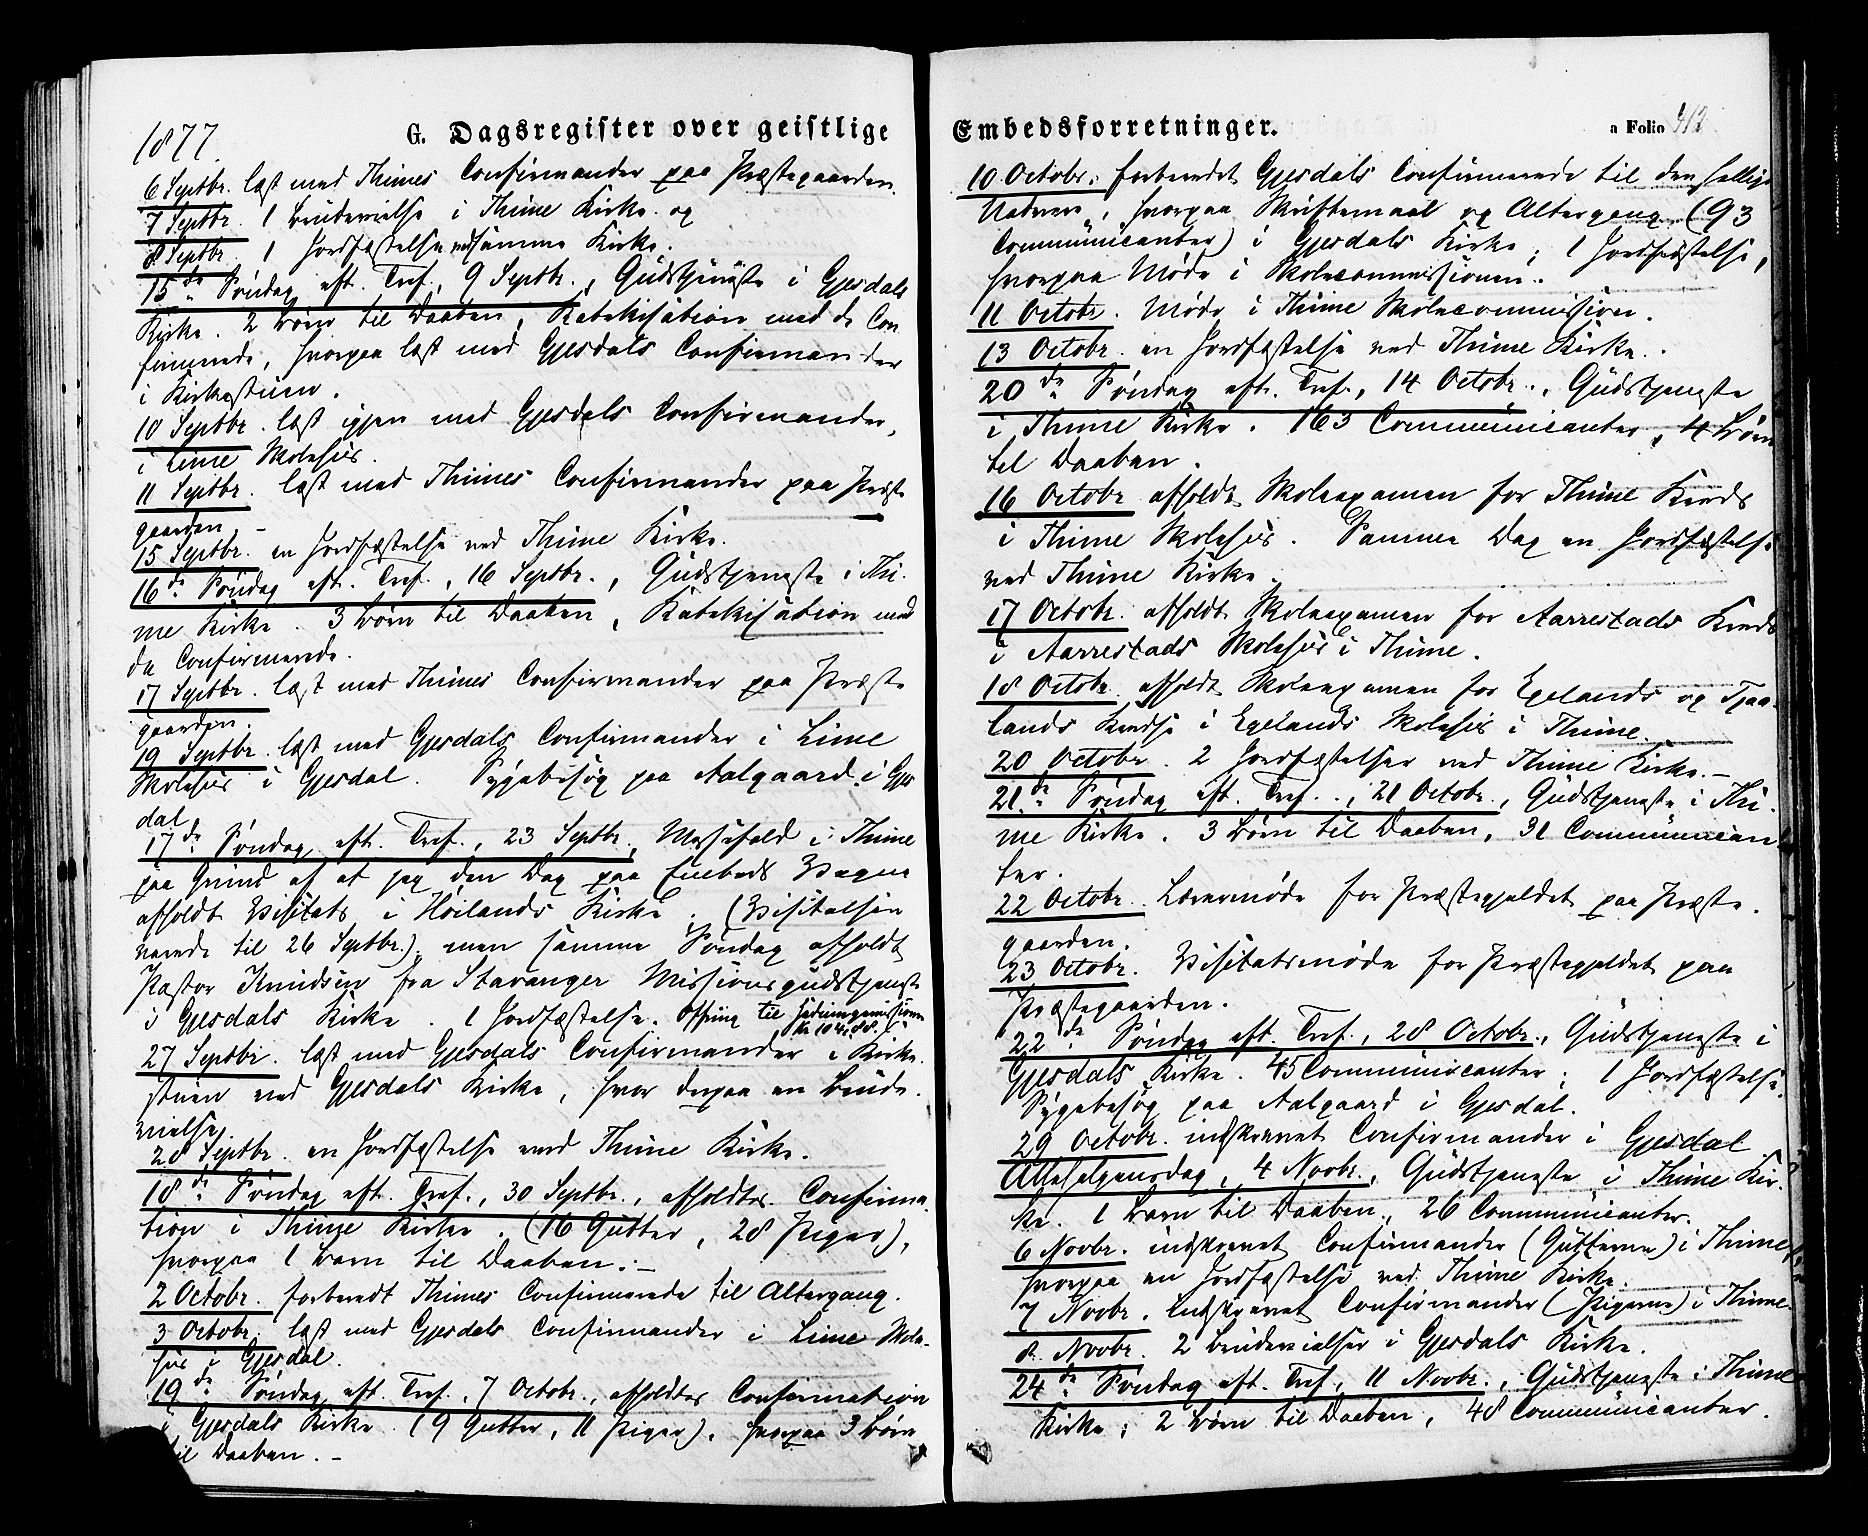 1877.
G. Dagsregister over geistlige
6 Septbr. læst med Thimes Confirmander paa Præstegaarden.
7 Septbr. 1 Brudevielse i Thime Kirke og
8 Septbr. 1 Jordfæstelse ved samme Kirke.
15de Søndag eft. Tref., 9 Septbr., Gudstjeneste i Gjesdals
Kirke. 2 Børn til Daaben, Katekisation med de Con
firmerede, hvorpaa læst med Gjesdals Confirmander
i Kirkestuen.
10 Septbr. læst igjen med Gjesdals Confirmander,
i Lime Skolehus.
11 Septbr. læst med Thimes Confirmander paa Præste
gaarden.-
15 Septbr. en Jordfæstelse ved Thime Kirke.
16de Søndag eft. Tref., 16 Septbr., Gudstjeneste i Thi-
me Kirke. 3 Børn til Daaben, Katekisation med
de Confirmerede.
17 Septbr. læst med Thimes Confirmander paa Præste
gaarden.
19 Septbr. læst med Gjesdals Confirmander i Lime
Skolehus i Gjesdal. Sygebesøg paa Aalgaard i Gjes
dal
17de Søndag eft. Tref., 23 Septbr., Messefald i Thime
paa Grund af at jeg den Dag paa Embeds Vegne
afholdt Visitats i Høilands Kirke. (Visitatsen
varede til 26 Septbr.), men samme Søndag afholdt
Pastor Knudsen fra Stavanger Missionsgudstjeneste
i Gjesdals Kirke. 1 Jordfæstelse. Offring til Hedningemissionen
Kr. 104,88.
27 Septbr. læst med Gjesdals Confirmander i Kirke-
stuen ved Gjesdals Kirke, hvor derpaa en Brude-
vielse.
28 Septbr. en Jordfæstelse ved Thime Kirke.
18de Søndag eft. Tref., 30 Septbr., afholdtes Confirma-
tion i Thime Kirke. (16 Gutter, 28 Piger),
hvorpaa 1 Barn til Daaben.-
2 Octobr. forberedt Thimes Confirmerede til Altergang.
3 Octobr. læst med Gjesdals Confirmander i Lime Skole-
hus i Gjesdal.
19de Søndag eft. Tref., 7 Octobr., afholdtes Confirmation
i Gjesdals Kirke. (9 Gutter, 11 Piger), hvorpaa 3 Børn
til Daaben.-
Embedsforretninger.
a Folio 412
10 Octobr. forberedet Gjesdals Confirmerede til den hellige
Nadvere, hvorpaa Skriftemaal og Altergang (93
Communicanter) i Gjesdals Kirke; 1 Jordfæstelse,
hvorpaa Møde i Skolecommissionen.
11 Octobr. Møde i Thime Skolecommission.
13 Octobr. en Jordfæstelse ved Thime Kirke.
20de Søndag eft. Tref., 14 Octobr., Gudstjeneste
i Thime Kirke. 163 Communicanter, 4 Børn
til Daaben.
16 Octobr. afholdt Skoleexamen for Thime Kreds
i Thime Skolehus. Samme Dag en Jordfæstelse
ved Thime Kirke.
17 Octobr. afholdt Skoleexamen for Aarrestads Kreds
i Aarrestads Skolehus i Thime.
18 Octobr. afholdt Skoleexamen for Egelands og Tjaa-
lands Kredse i Egelands Skolehus i Thime.
20 Octobr. 2 Jordfæstelser ved Thime Kirke.-
21de Søndag eft. Tref., 21 Octobr., Gudstjeneste i Thi-
me Kirke. 3 Børn til Daaben, 31 Communican
ter.
22 Octobr. Lærermøde for Præstegjeldet paa Præste-
gaarden.
23 Octobr. Visitatsmøde for Præstegjeldet paa
Præstegaarden.
22de Søndag eft. Tref., 28 Octobr., Gudstjeneste i
Gjesdals Kirke. 45 Communicanter; 1 Jordfæstelse.
Sygebesøg paa Aalgaard i Gjesdal.
29 Octobr. indskrevet Confirmander i Gjesdal
Allehelgensdag, 4 Novbr., Gudstjeneste i Thime Kir-
ke. 1 Barn til Daaben, 26 Communicanter.
6 Novbr. indskrevet Confirmander (Gutterne) i Thime
hvorpaa en Jordfæstelse ved Thime Kirke.
7 Novbr. Indskrevet Confirmander (Pigerne) i Thime.
8 Novbr. 2 Brudevielser i Gjesdals Kirke.
24de Søndag eft. Tref., 11 Novbr., Gudstjeneste i Thime
Kirke; 2 Børn til Daaben, 48 Communicanter.